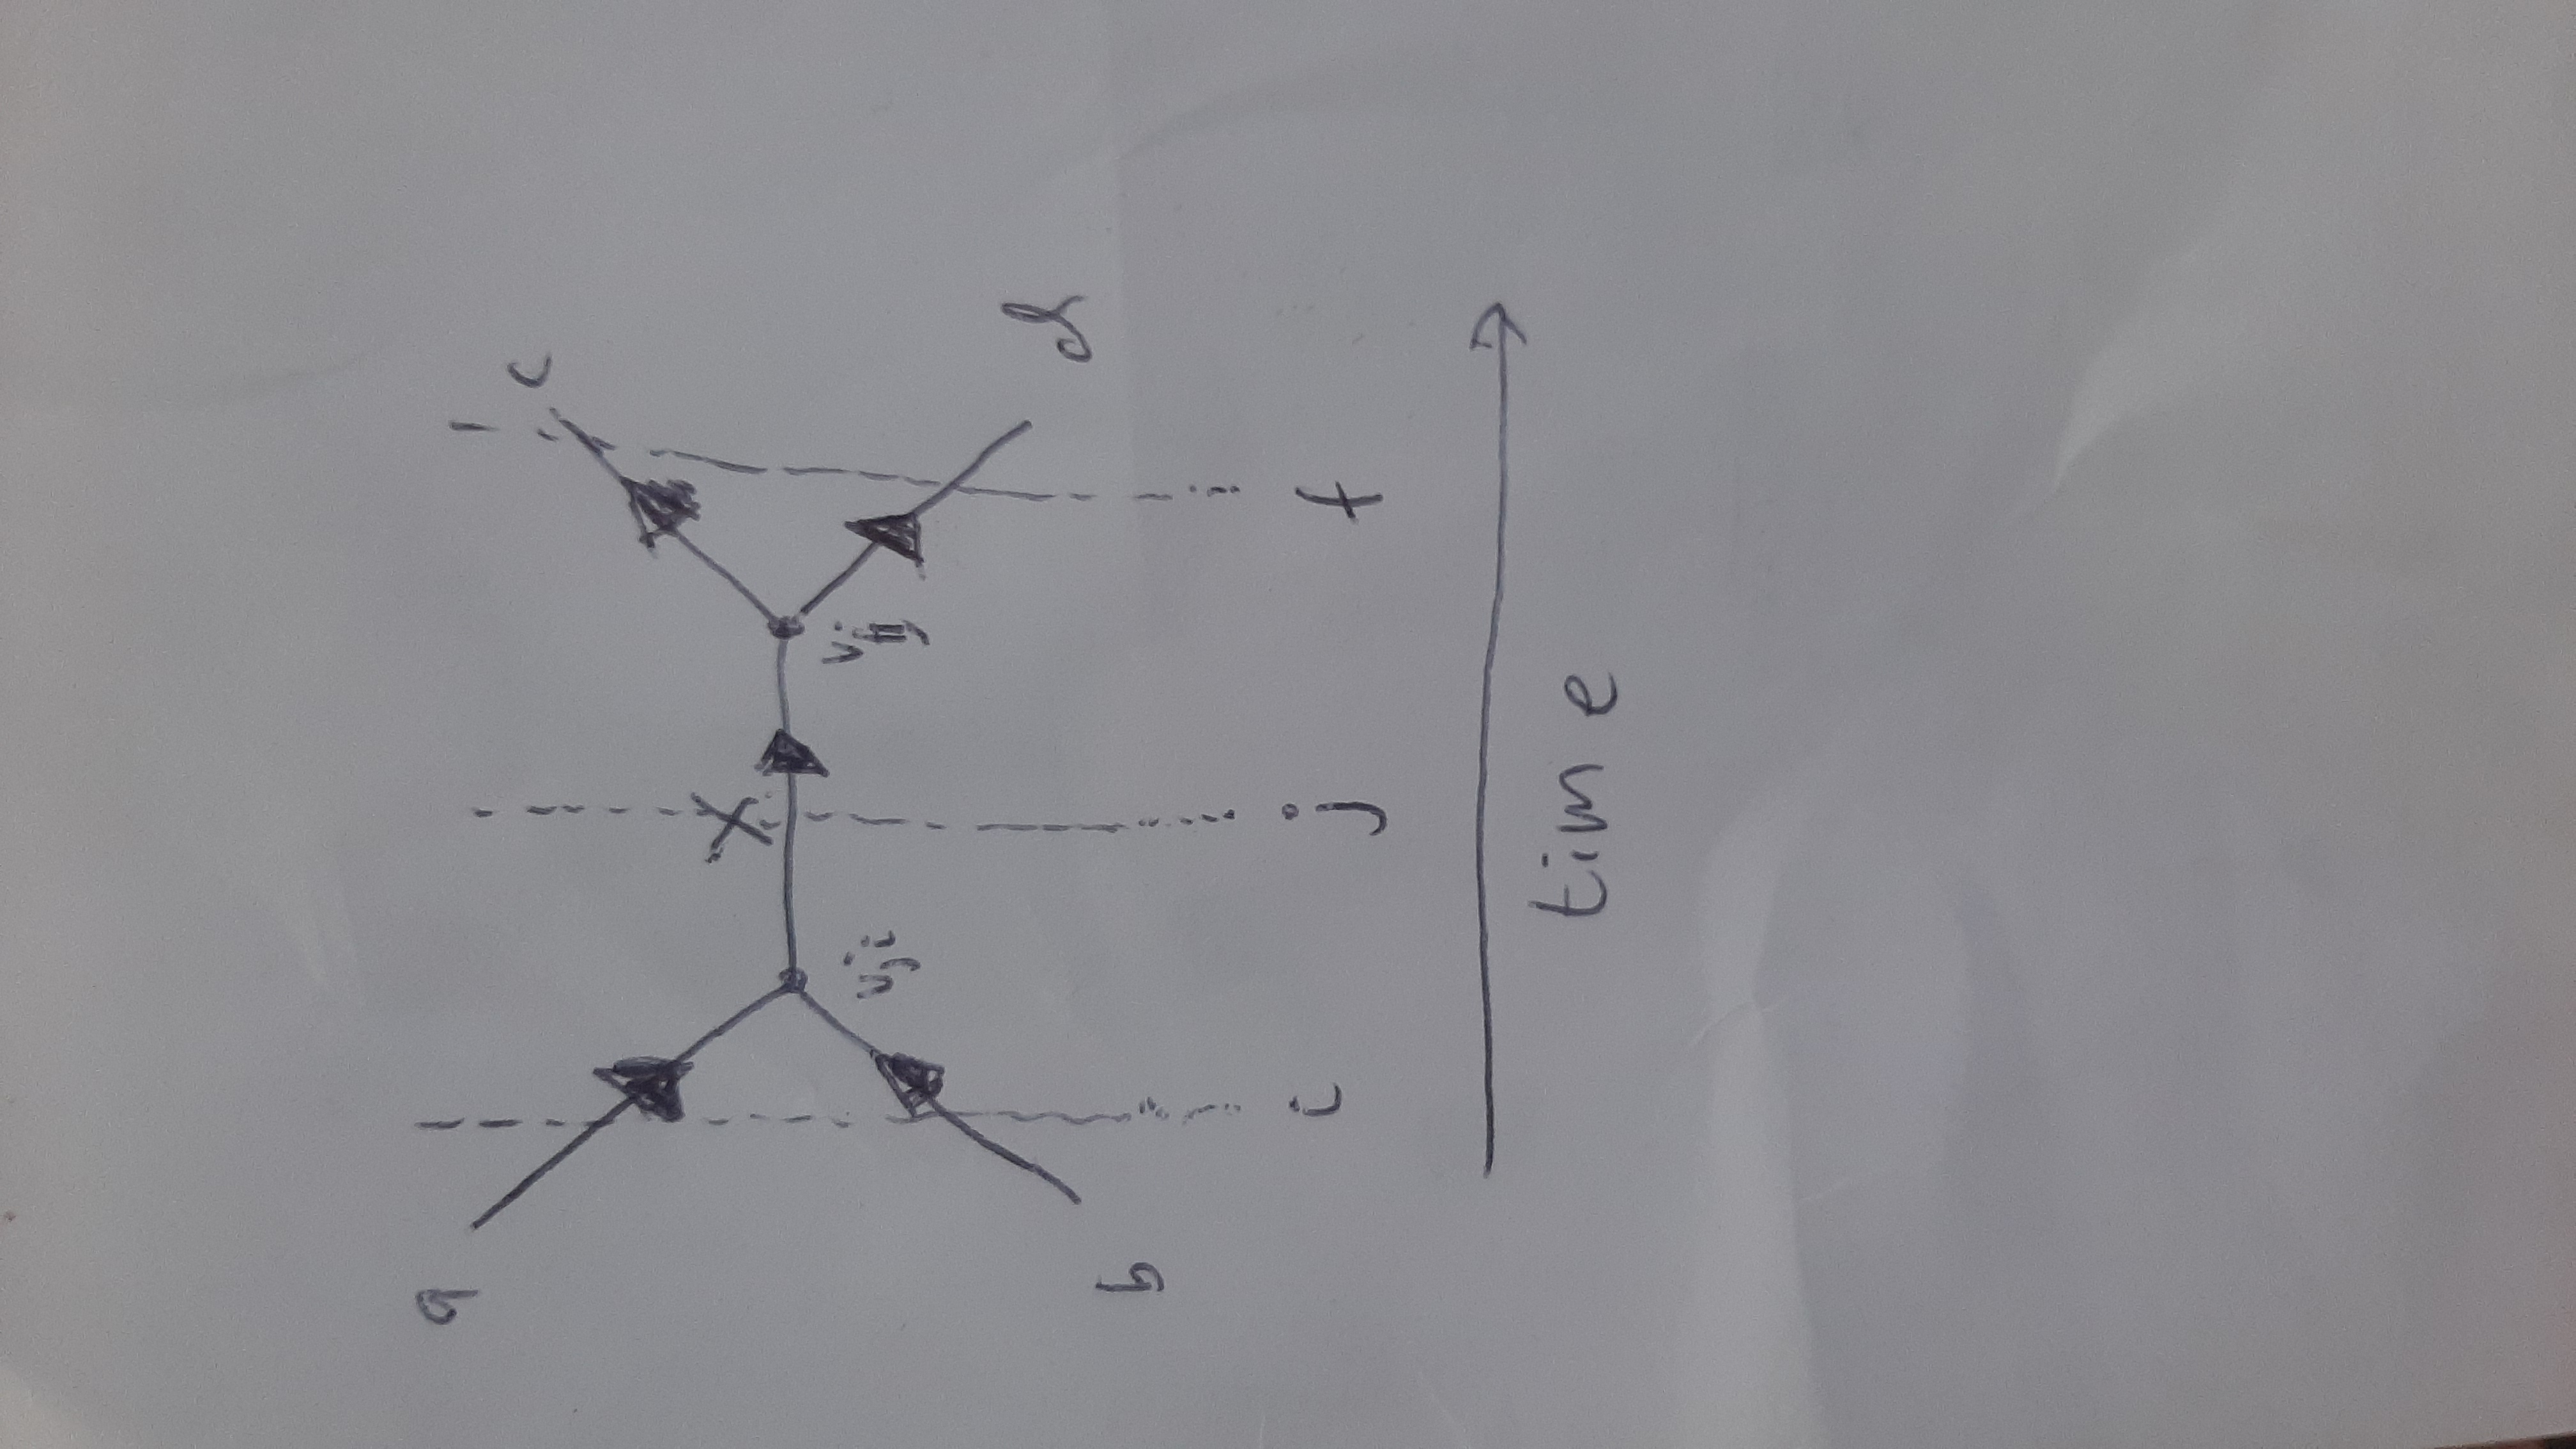 a
c
X
v_ji
v_fj
b
d
i
j
f
time